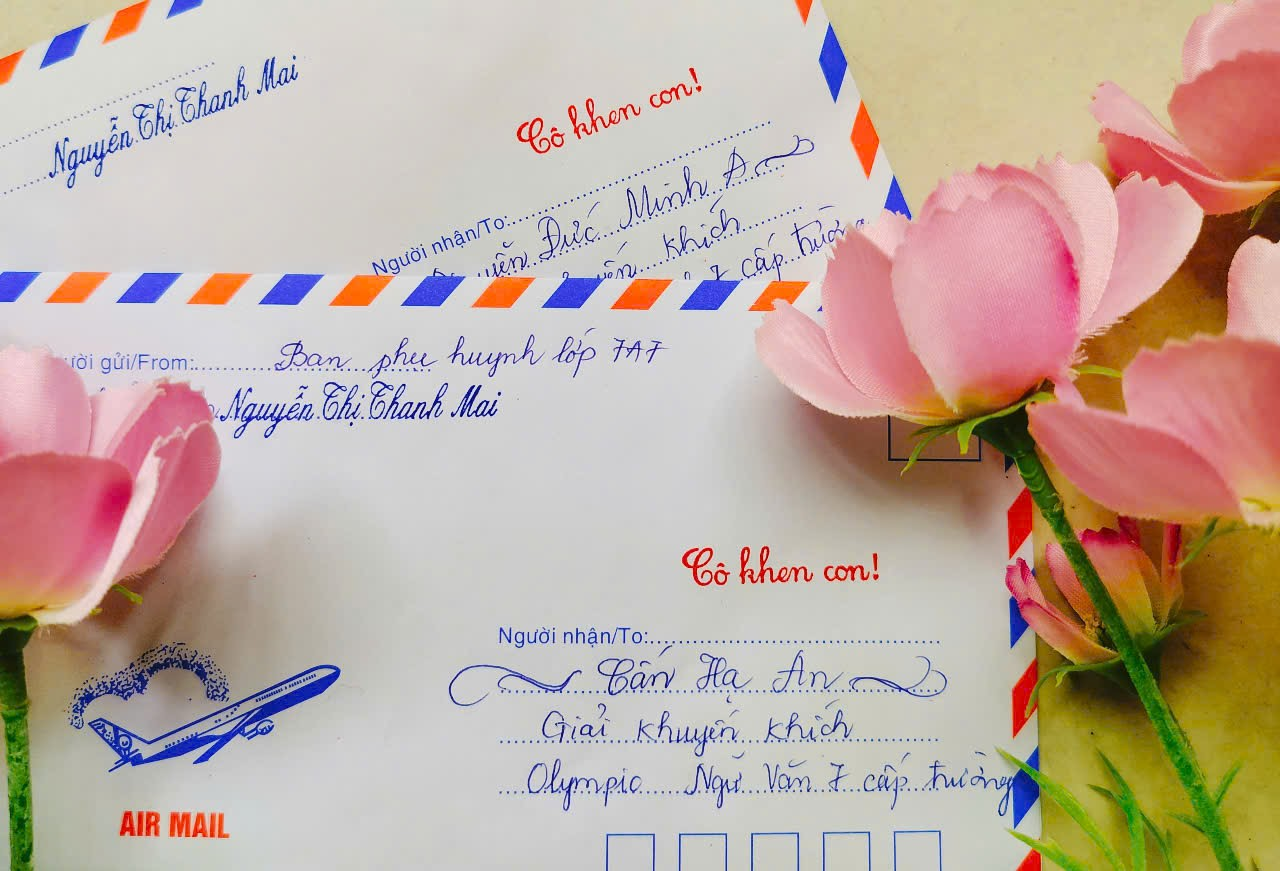 Nguyễn Thị Thanh Mai
Cô khen con!
Người nhận/To:
Đức Minh A
khích
7 cấp trường
gửi/From: Ban phụ huynh lớp 7A7
Nguyễn Thị Thanh Mai
Cô khen con!
Người nhận/To:
Cấn Hạ An
Giải khuyến khích
Olympic Ngữ Văn 7 cấp trường
AIR MAIL